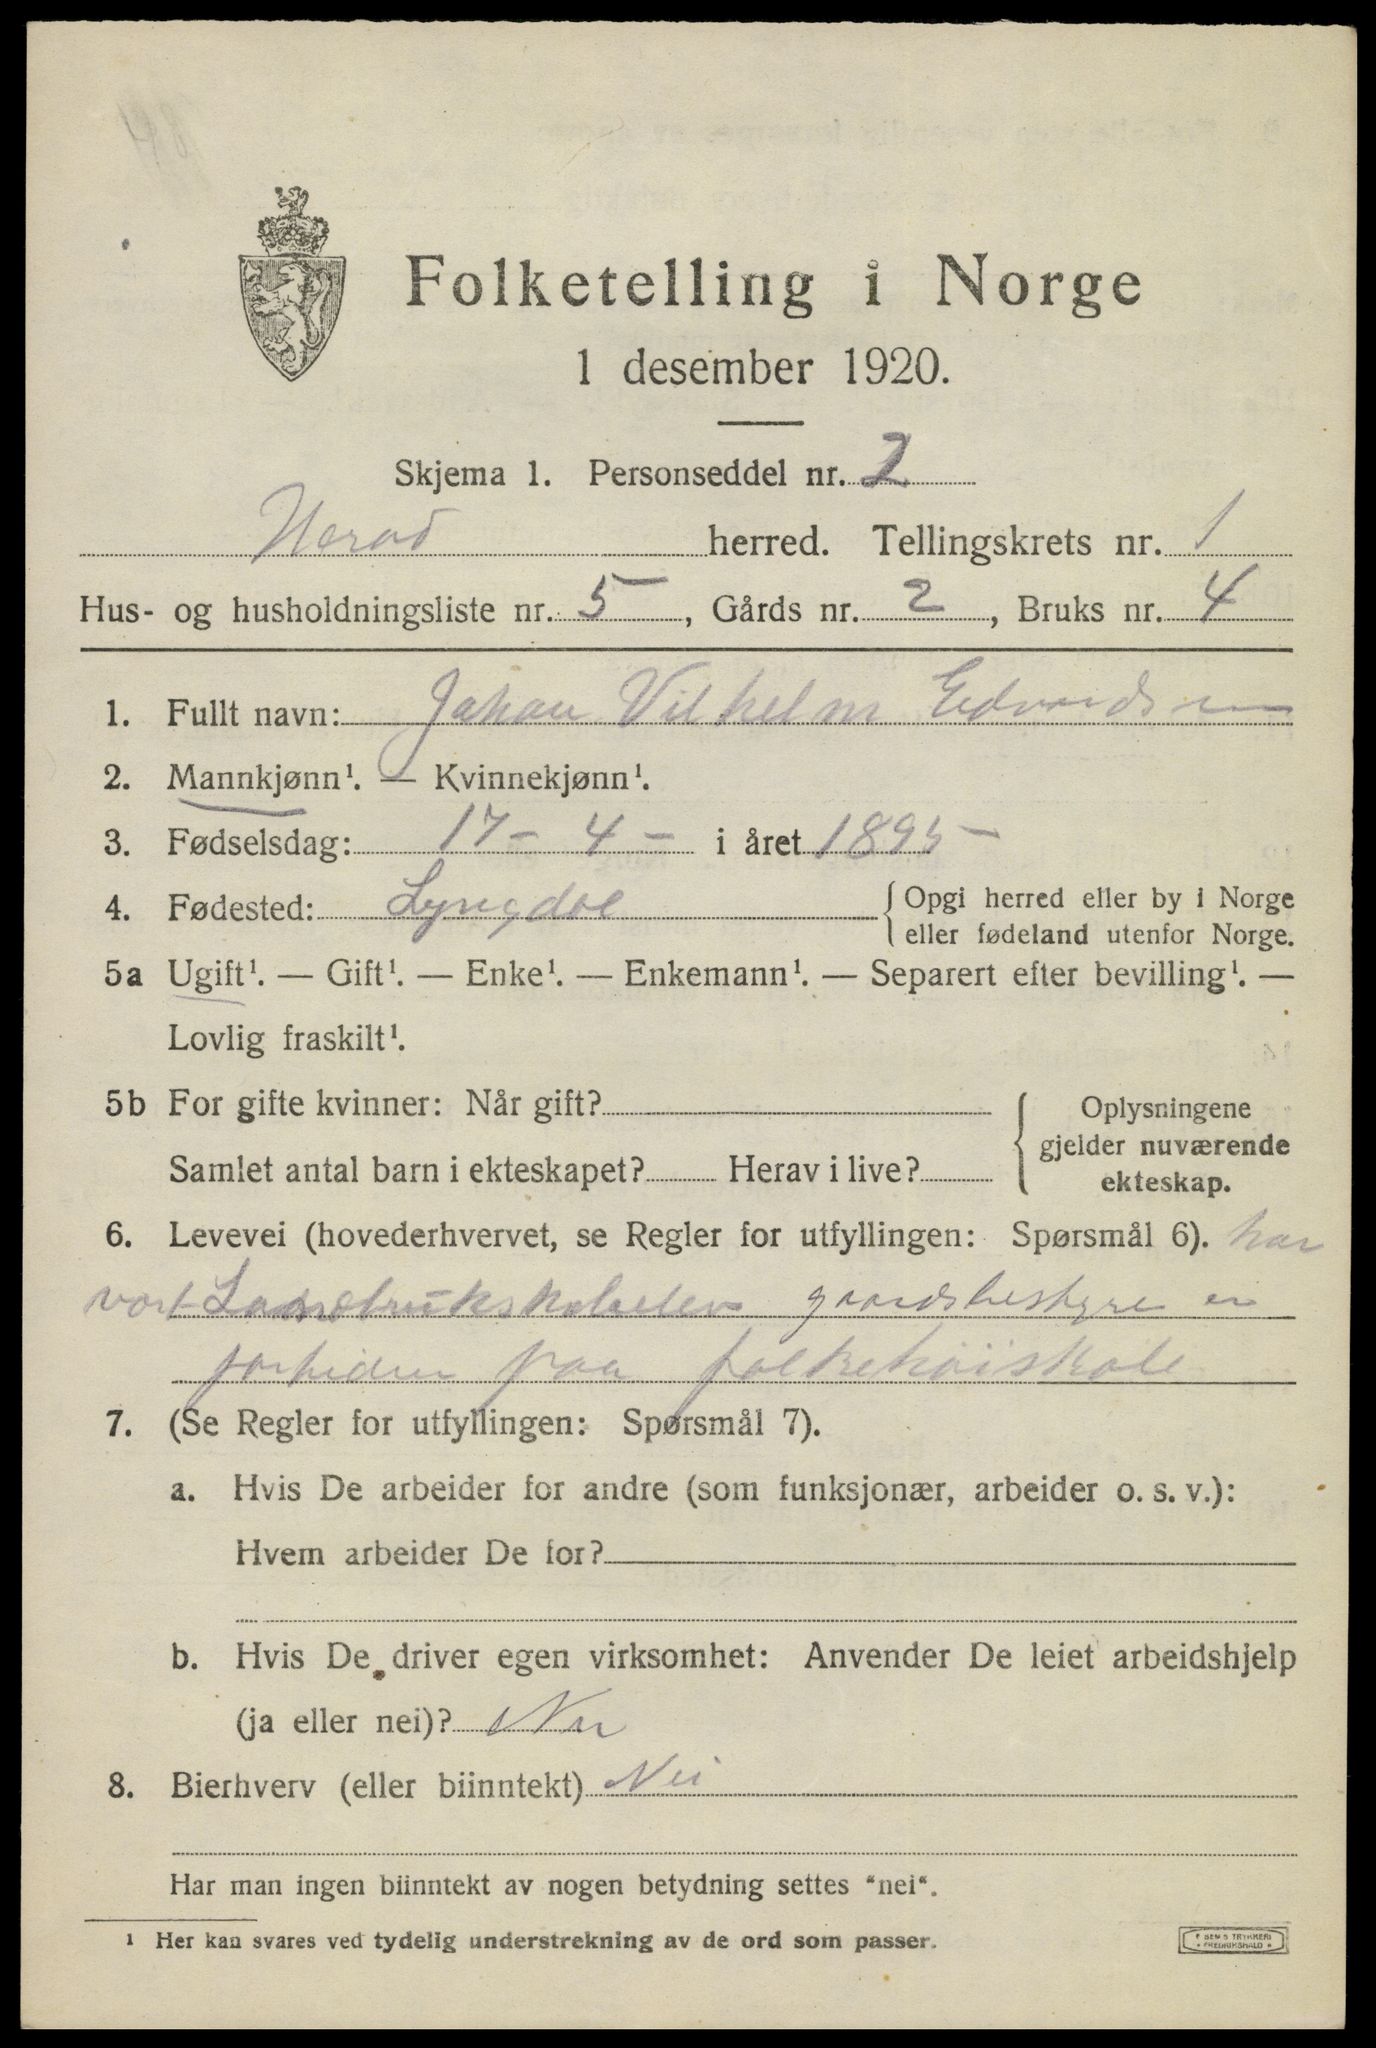 Folketelling i Norge
1 desember 1920.
Skjema 1. Personseddel nr. 2
Herad herred. Tellingskrets nr. 1
Hus- og husholdningsliste nr. 5, Gårds nr. 2, Bruks nr. 4
1. Fullt navn: Johan Vilhelm Edvardsen
2. Mannkjønn¹. — Kvinnekjønn¹.
3. Fødselsdag: 17 - 4 - i året 1895 -
4. Fødested: Lyngdal {Opgi herred eller by i Norge
eller fødeland utenfor Norge.
5a Ugift¹. — Gift¹. — Enke¹. — Enkemann¹. — Separert efter bevilling¹. —
Lovlig fraskilt¹.
5b For gifte kvinner: Når gift?
Samlet antal barn i ekteskapet? Herav i live?
{Oplysningene
gjelder nuværende
ekteskap.
6. Levevei (hovederhvervet, se Regler for utfyllingen: Spørsmål 6). har
vort Landbrukskoleelev gaardsbestyre er
for tiden paa folkehøiskole
7. (Se Regler for utfyllingen: Spørsmål 7).
a. Hvis De arbeider for andre (som funksjonær, arbeider o. s. v.):
Hvem arbeider De for?
b. Hvis De driver egen virksomhet: Anvender De leiet arbeidshjelp
(ja eller nei)? Nei
8. Bierhverv (eller biinntekt) Nei
Har man ingen biinntekt av nogen betydning settes “nei“.
¹ Her kan svares ved tydelig understrekning av de ord som passer.
TRYKKERI
FREDRIKSHALD